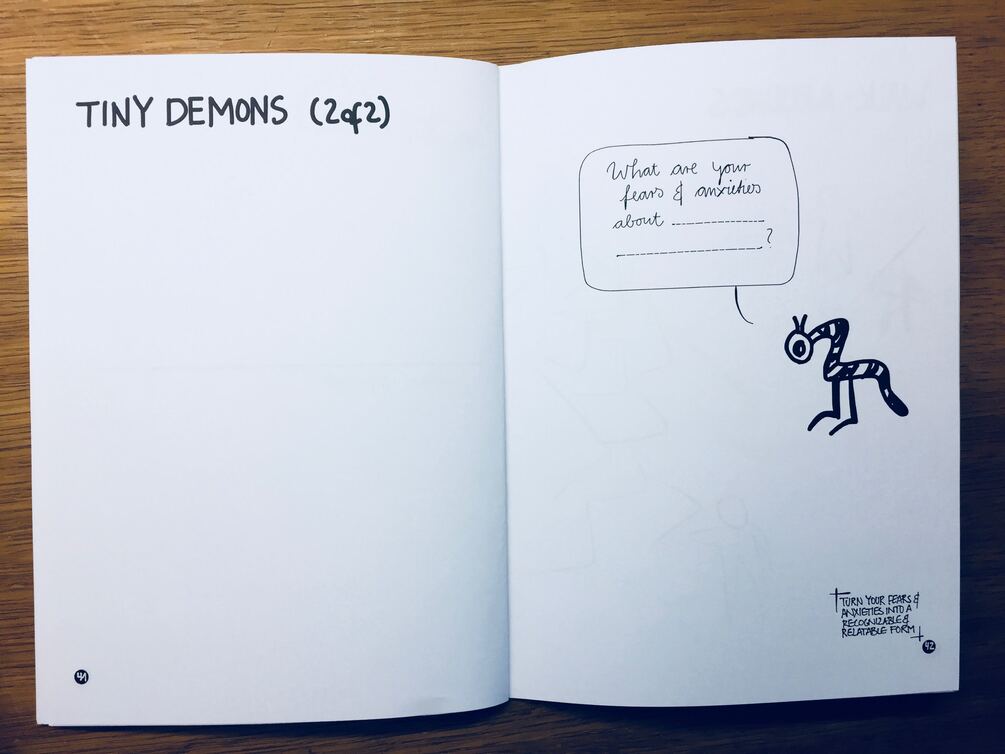 TINY DEMONS (2of2)
What are your
fears & anxieties
about ____________
____________________?
TURN YOUR FEARS &
ANXIETIES INTO A
RECOGNIZABLE &
RELATABLE FORM
41
42